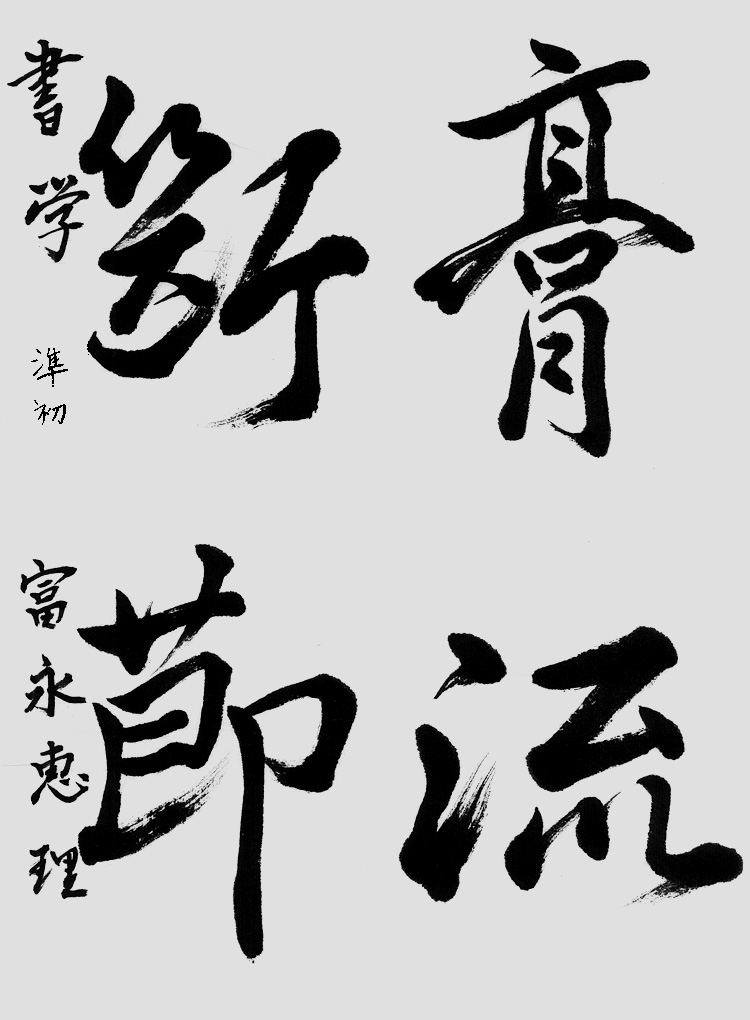 膏流
斷節
書学 準初 富永恵理